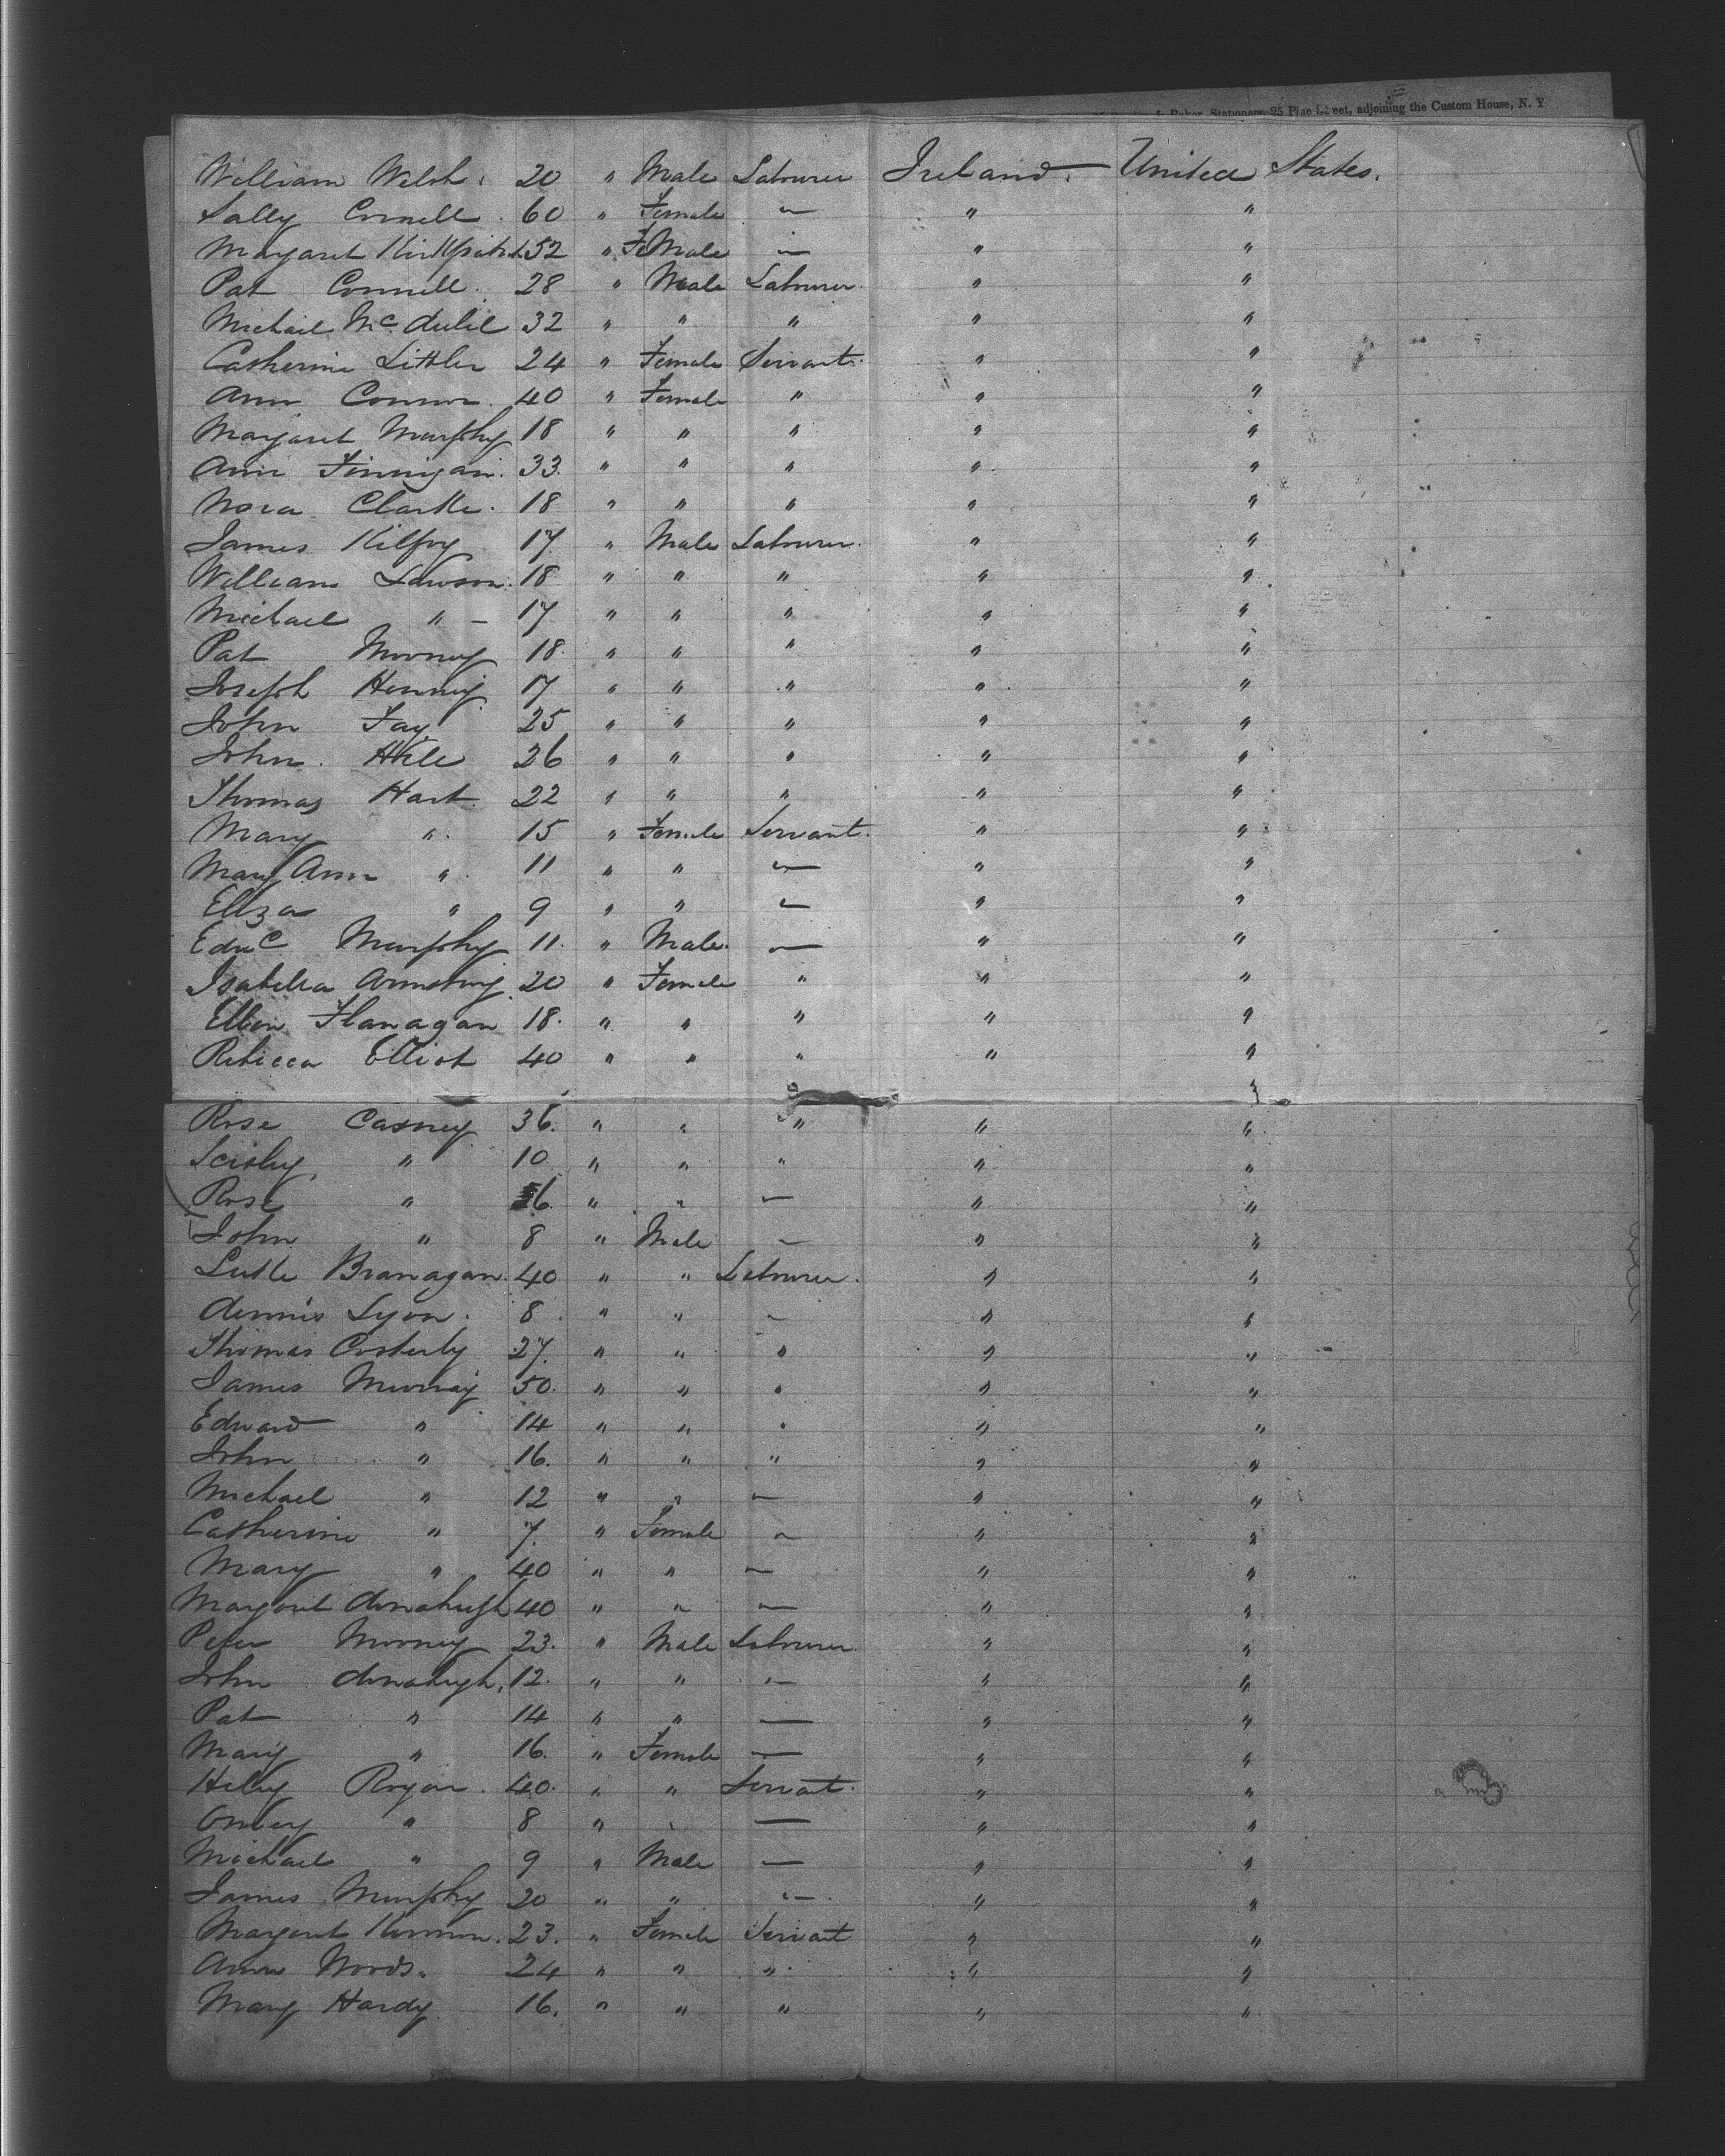 Stationers, 25 Pine Street, adjoining the Custom House, N. Y
William Welsh. 20 " Male Labourer Ireland. United States.
Sally Connell. 60 " Female — " "
Margaret Kirkpatrk 52 " FeMale — " "
Pat Connell. 28 " Male Labourer. " "
Michail Mc 32 " " " " "
Catherine Littler 24 " Female Servant. " "
Ann Connor. 40 " Female " " "
Margaret Murphy 18 " " " " "
Ann Finnigan. 33. " " " " "
Nora Clarke. 18 " " " " "
James Kilfoy 17. " Male Labourer. " "
William Lawson. 18 " " " " "
Michael " — 17. " " " " "
Pat Mooney 18. " " " " "
Joseph Henney 17 " " " " "
John Fay 25 " " " " "
John. Hile 26 " " " " "
Thomas Hart. 22 " " " " "
Mary " 15 " Female Servant. " "
Mary Ann " 11 " " — " "
Eliza " 9 " " — " "
Edwd Murphy 11. " Male. — " "
Isabella Armstrong 20 " Female " " "
Ellen Flanagan 18. " " " " "
Rebecca Elliot 40 " " " " "
Rose Casney 36. " " " " "
" 10 " " " " "
Rose " 6. " " — " "
John " 8 " Male — " "
Branagan. 40 " " Labourer. " "
Dennis Lyon. 8. " " — " "
Thomas Costerly 27. " " " " "
James Murray 50. " " " " "
Edward " 14 " " " " "
John " 16. " " " " "
Michael " 12 " " — " "
Catherine " 7. " Female — " "
Mary " 40 " " — " "
Margaret Donahugh 40 " " — " "
Peter Mooney 23. " Male Labourer. " "
John Donahugh. 12. " " — " "
Pat " 14 " " — " "
Mary " 16. " Female — " "
Ryan. 40. " " Servant. " "
" 8 " " — " "
Michael " 9 " Male — " "
James Murphy 20 " " — " "
Margaret Kernon. 23. " Female Servant " "
Ann Woods. 24 " " " " "
Mary Hardy. 16. " " " " "